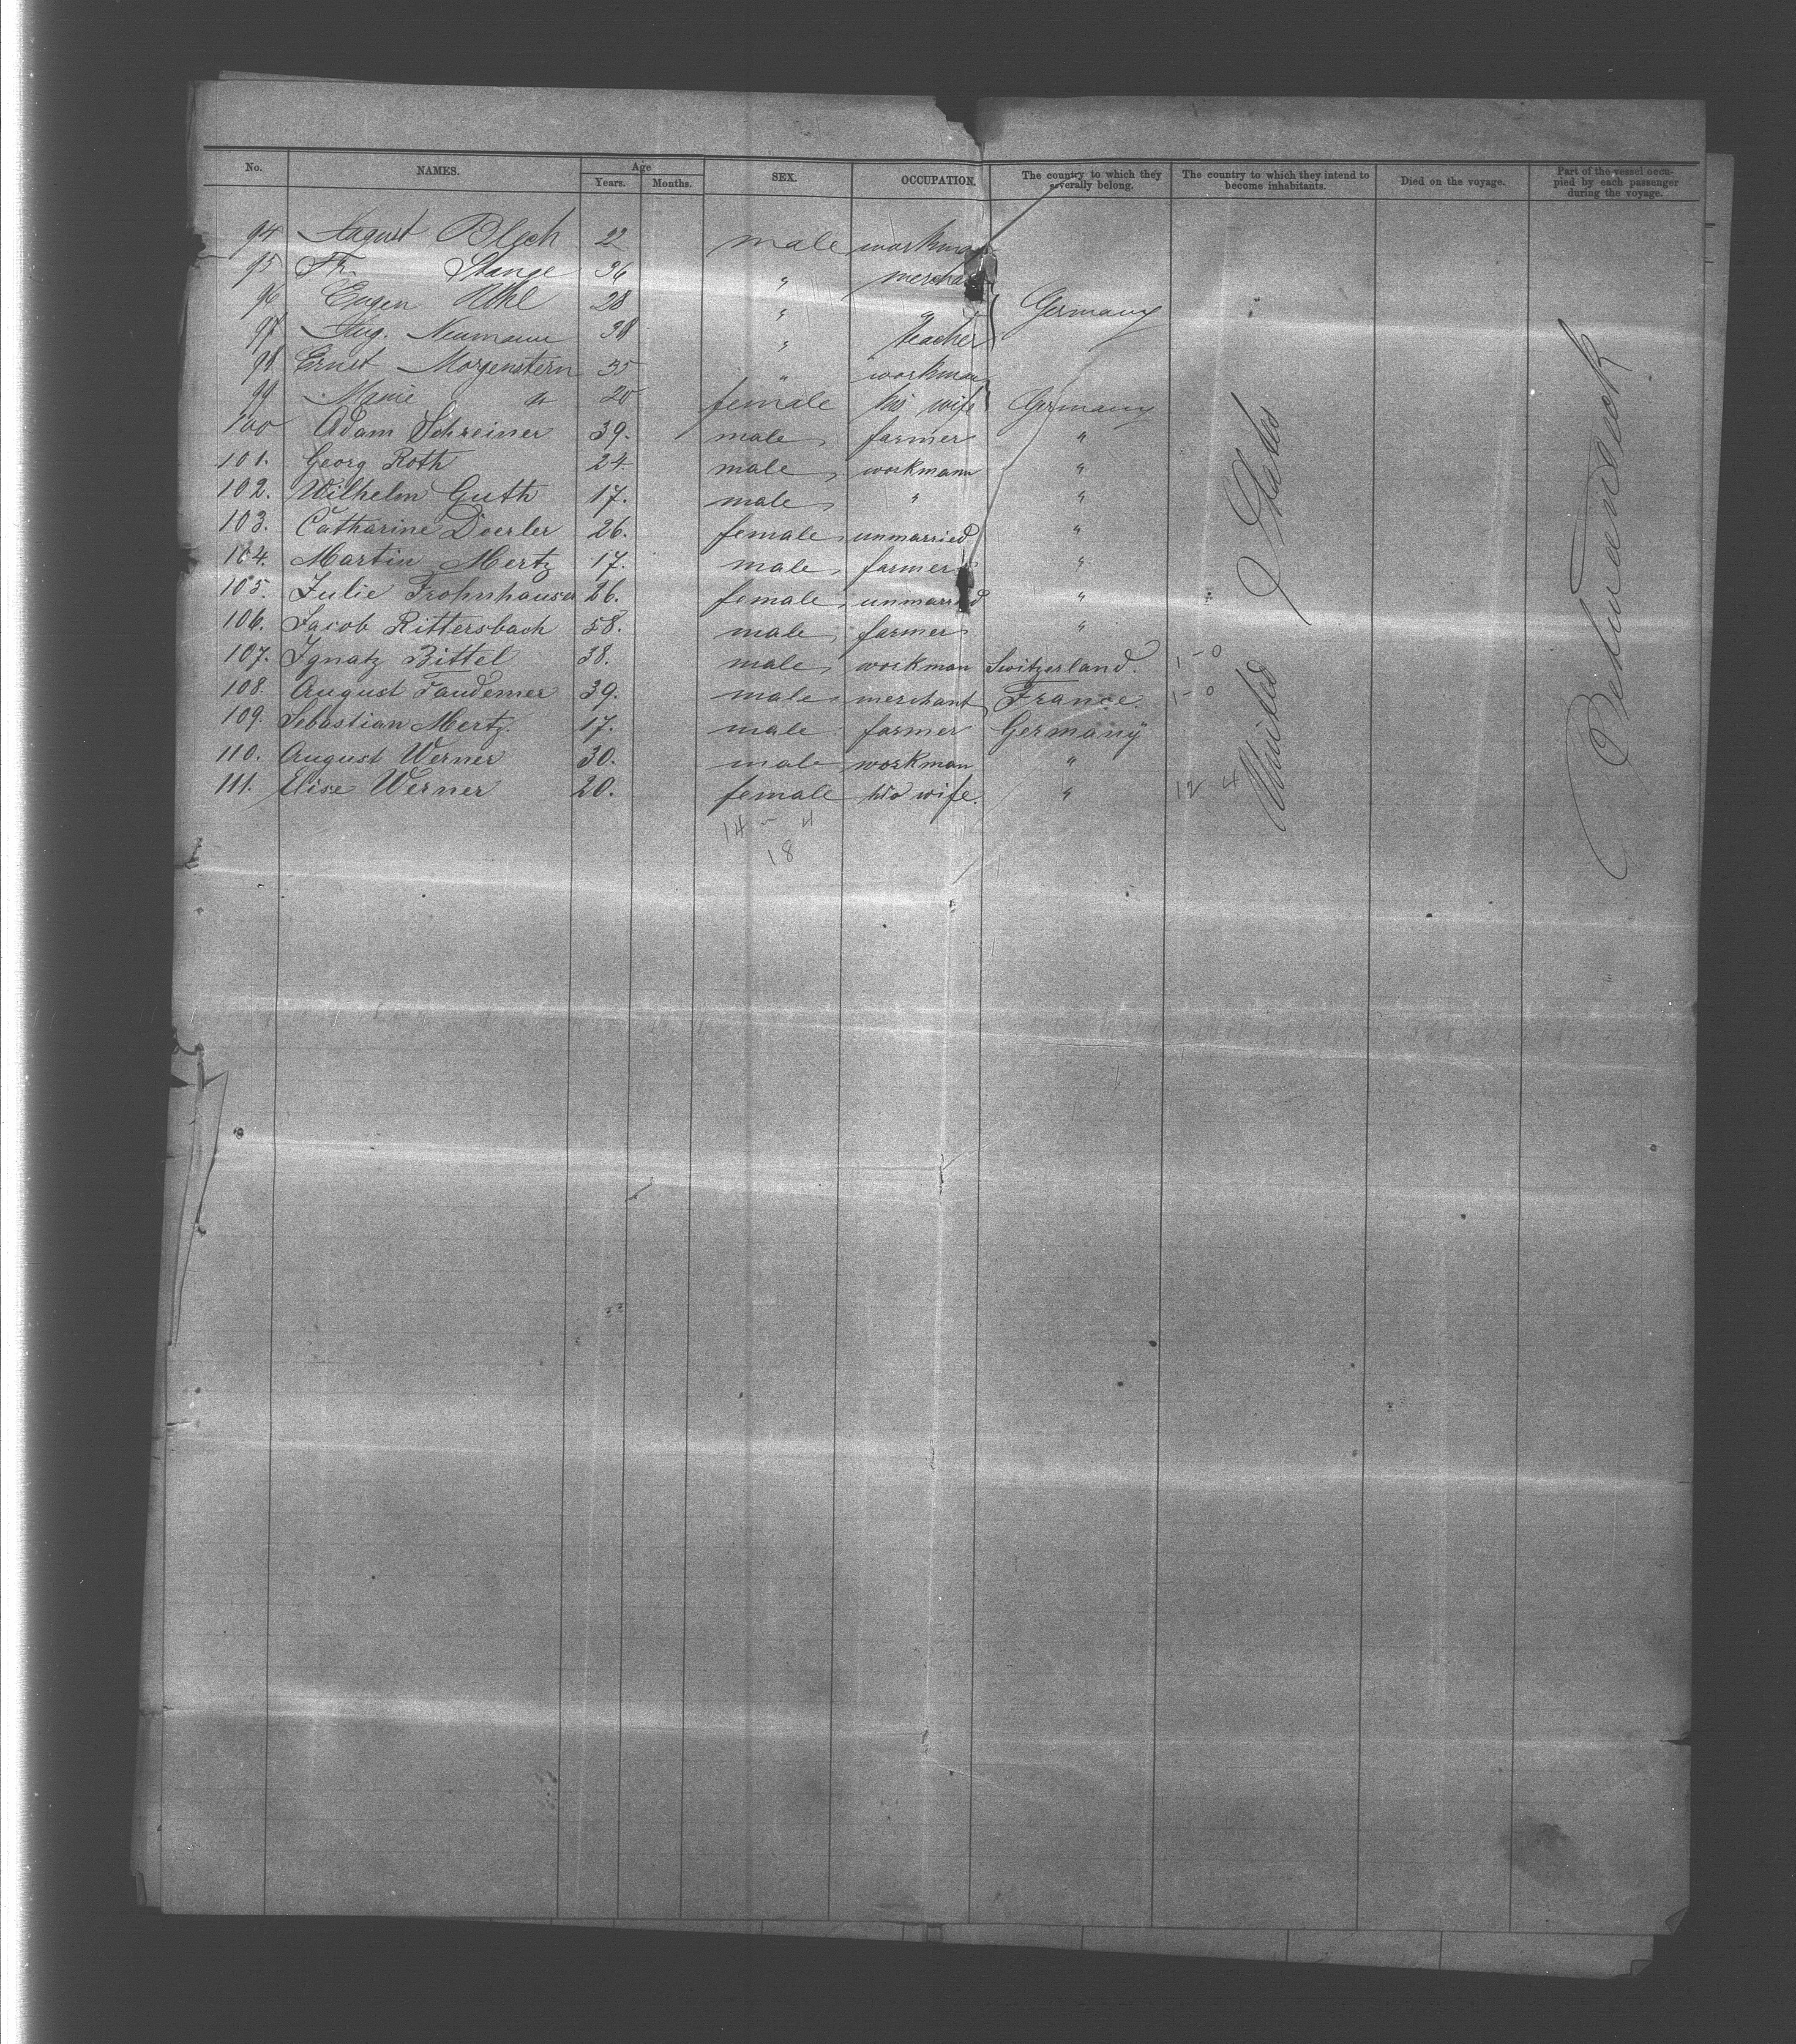 No. NAMES. Age Years. Months. SEX. OCCUPATION. The country to which they severally belong. The country to which they intend to become inhabitants. Died on the voyage. Part of the vessel occupied by each passenger during the voyage.
94 August Blech 22 male workman
95 Fr. Stange 36 " merchant
96 Eugen 28 " " Germany
97 Aug. Neumann 38 " teacher
98 Ernst Morgenstern 35 " workman
99 Marie " 20 female his wife Germany
100 Adam Schreiner 39. male farmer "
101. Georg Roth 24 male workmann "
102. Wilhelm Guth 17. male " "
103. Catharine Doerler 26. female unmarried "
104. Martin Mertz 17. male farmer "
105. Julie Frohnhauser 26. female unmarried "
106. Jacob Rittersbach 58. male farmer "
107. Ignatz Bittel 38. male workman Switzerland. 1-0
108. August Faudemer 39. male merchant France. 1-0
109. Sebastian Mertz. 17. male farmer Germany
110. August Werner 30. male workman "
111. Elise Werner 20. female his wife. " 12 4
14 - 4
18
United States
Betweendeck